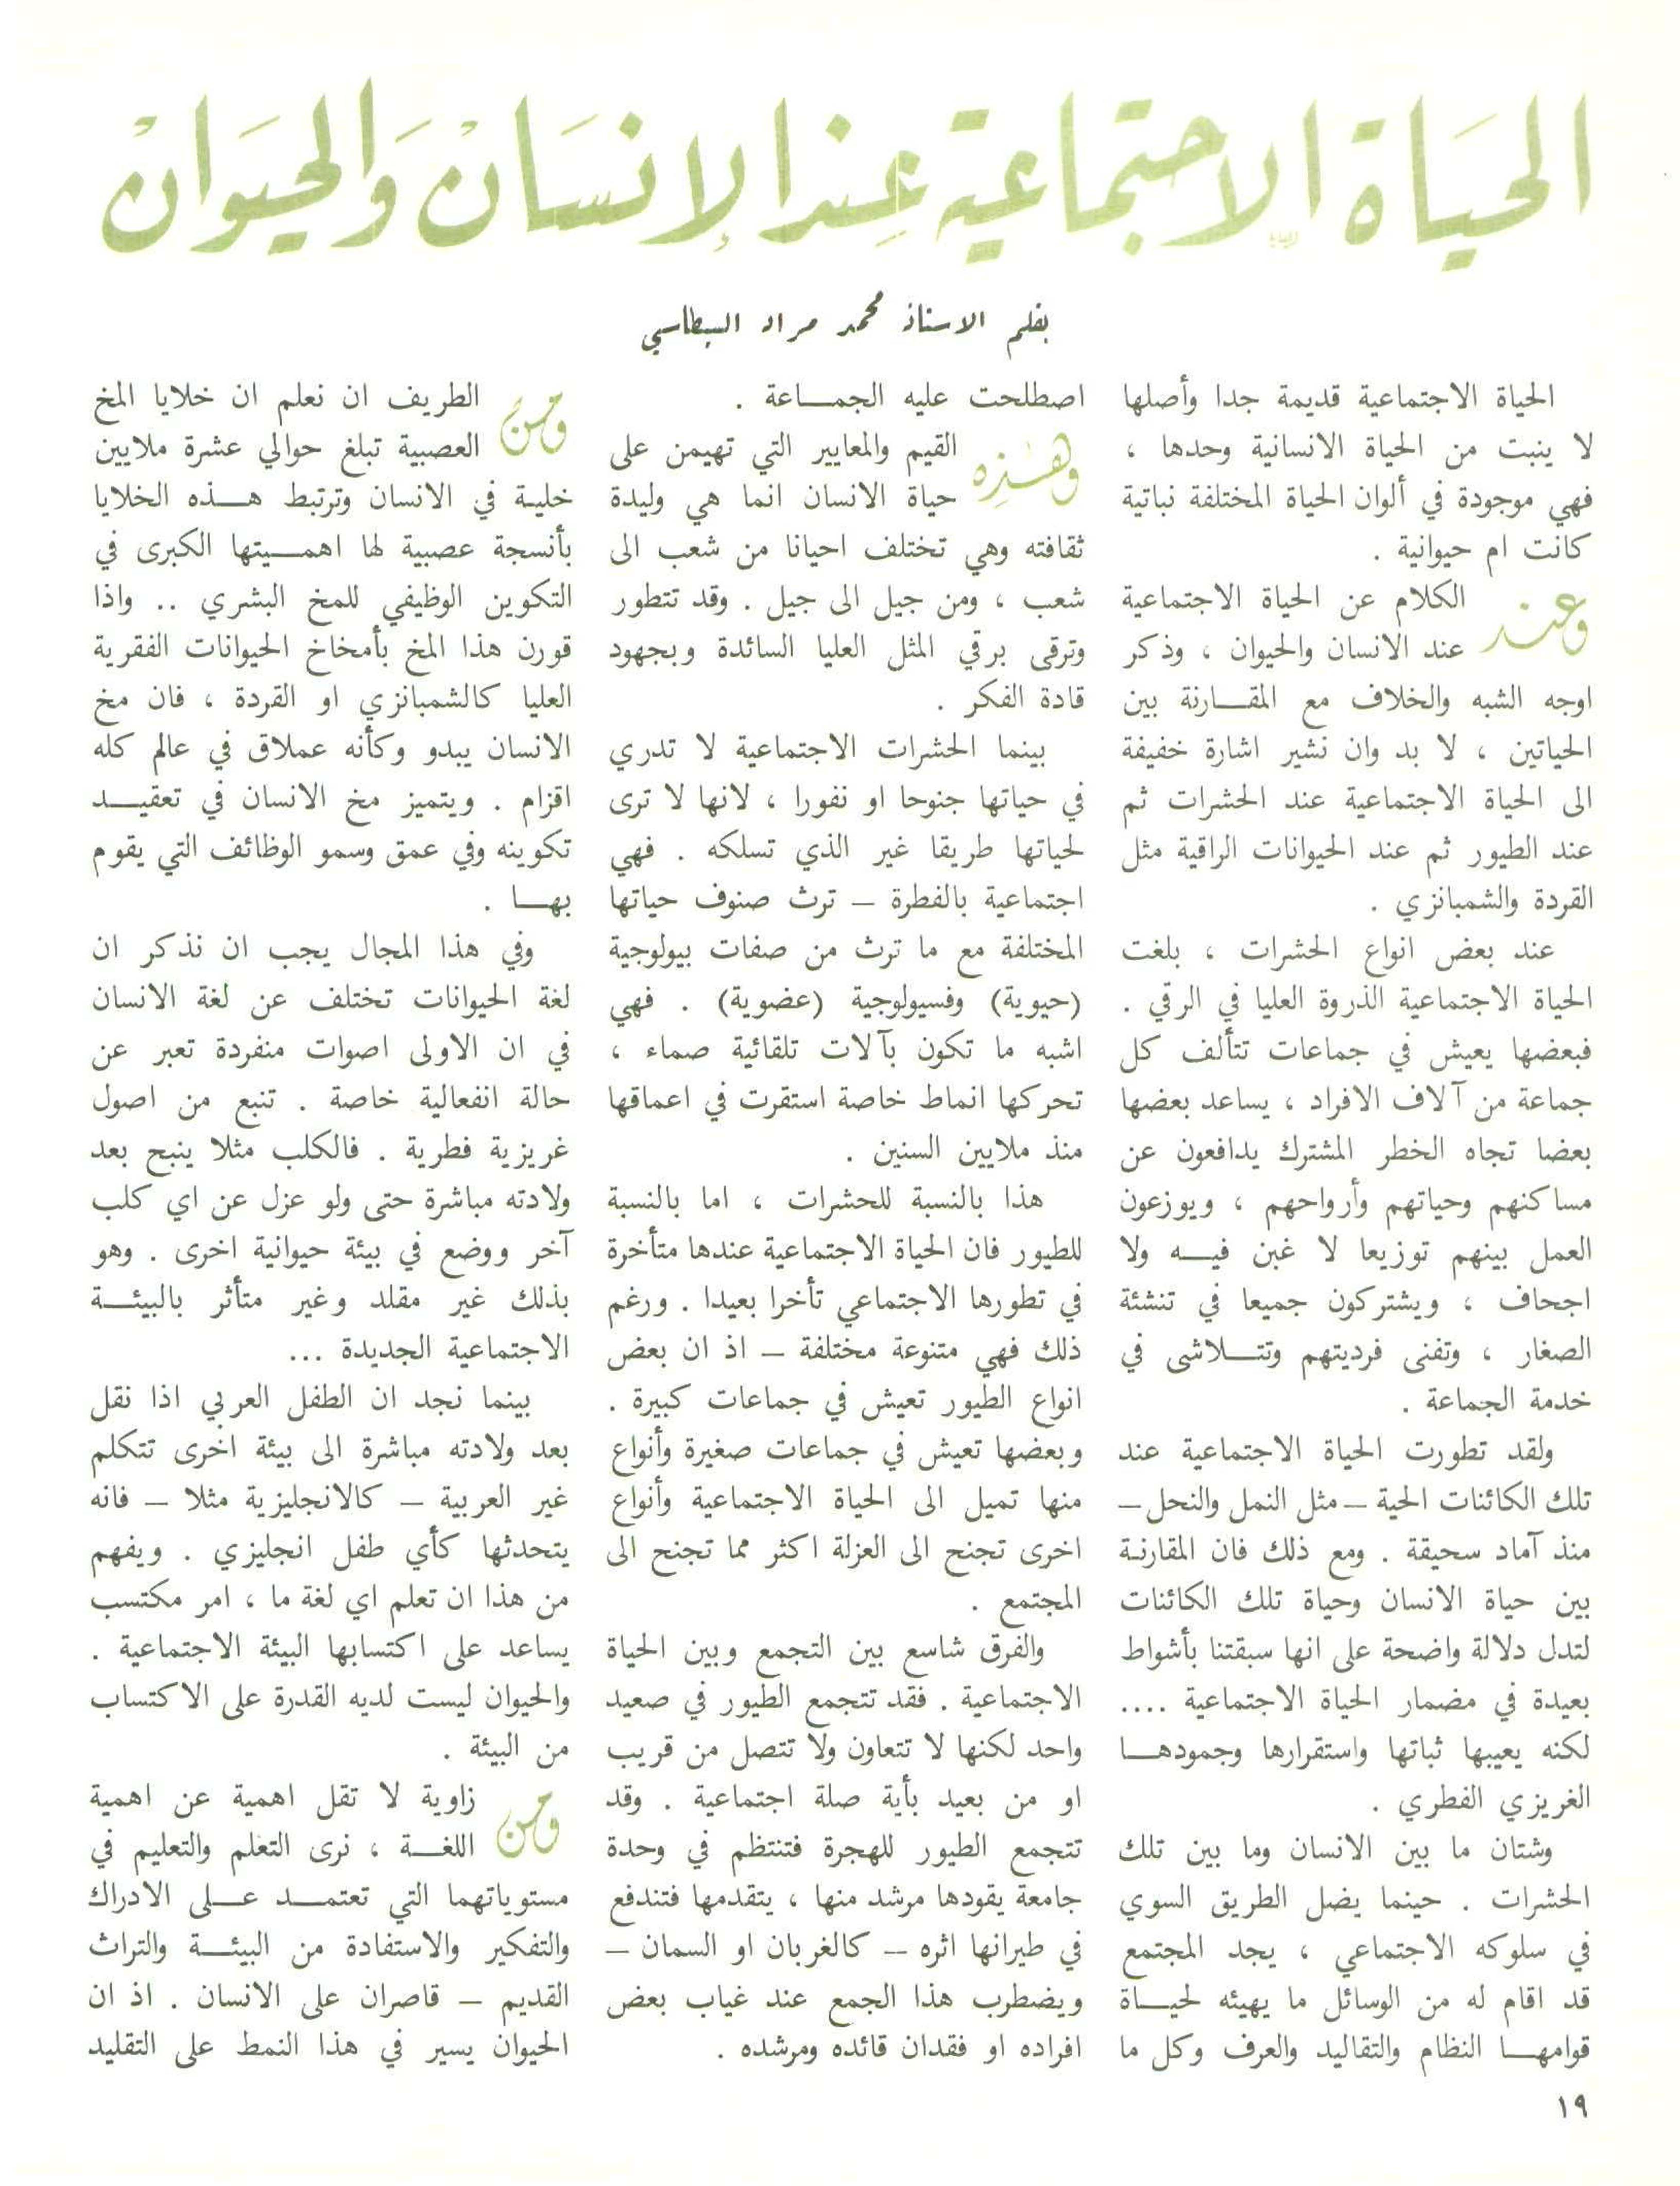 الحياة الاجتماعية عند الإنسان والحيوان
بقلم الاستاذ محمد مراد السبطاسي
الحياة الاجتماعية قديمة جدا وأصلها
لا ينبت من الحياة الانسانية وحدها ،
فهي موجودة في ألوان الحياة المختلفة نباتية
كانت ام حيوانية .
وعند الكلام عن الحياة الاجتماعية
عند الانسان والحيوان ، وذكر
اوجه الشبه والخلاف مع المقارنة بين
الحياتين ، لا بد وان نشير اشارة خفيفة
الى الحياة الاجتماعية عند الحشرات ثم
عند الطيور ثم عند الحيوانات الراقية مثل
القردة والشمبانزي .
عند بعض انواع الحشرات ، بلغت
الحياة الاجتماعية الذروة العليا في الرقي .
فبعضها يعيش في جماعات تتألف كل
جماعة من آلاف الافراد ، يساعد بعضها
بعضا تجاه الخطر المشترك يدافعون عن
مساكنهم وحياتهم وأرواحهم ، ويوزعون
العمل بينهم توزيعا لا غبن فيه ولا
اجحاف ، ويشتركون جميعا في تنشئة
الصغار ، وتفنى فرديتهم وتتلاشى في
خدمة الجماعة .
ولقد تطورت الحياة الاجتماعية عند
تلك الكائنات الحية – مثل النمل والنحل –
منذ آماد سحيقة . ومع ذلك فان المقارنة
بين حياة الانسان وحياة تلك الكائنات
لتدل دلالة واضحة على انها سبقتنا بأشواط
بعيدة في مضمار الحياة الاجتماعية ....
لكنه يعيبها ثباتها واستقرارها وجمودها
الغريزي الفطري .
وشتان ما بين الانسان وما بين تلك
الحشرات . حينما يضل الطريق السوي
في سلوكه الاجتماعي ، يجد المجتمع
قد اقام له من الوسائل ما يهيئه لحياة
قوامها النظام والتقاليد والعرف وكل ما
اصطلحت عليه الجماعة .
وهذه القيم والمعايير التي تهيمن على
حياة الانسان انما هي وليدة
ثقافته وهي تختلف احيانا من شعب الى
شعب ، ومن جيل الى جيل . وقد تتطور
وترقى برقي المثل العليا السائدة وبجهود
قادة الفكر .
بينما الحشرات الاجتماعية لا تدري
في حياتها جنوحا او نفورا ، لانها لا ترى
لحياتها طريقا غير الذي تسلكه . فهي
اجتماعية بالفطرة – ترث صنوف حياتها
المختلفة مع ما ترث من صفات بيولوجية
(حيوية) وفسيولوجية (عضوية) . فهي
اشبه ما تكون بآلات تلقائية صماء ،
تحركها انماط خاصة استقرت في اعماقها
منذ ملايين السنين .
هذا بالنسبة للحشرات ، اما بالنسبة
للطيور فان الحياة الاجتماعية عندها متأخرة
في تطورها الاجتماعي تأخرا بعيدا . ورغم
ذلك فهي متنوعة مختلفة – اذ ان بعض
انواع الطيور تعيش في جماعات كبيرة .
وبعضها تعيش في جماعات صغيرة وأنواع
منها تميل الى الحياة الاجتماعية وأنواع
اخرى تجنح الى العزلة اكثر مما تجنح الى
المجتمع .
والفرق شاسع بين التجمع وبين الحياة
الاجتماعية . فقد تتجمع الطيور في صعيد
واحد لكنها لا تتعاون ولا تتصل من قريب
او من بعيد بأية صلة اجتماعية . وقد
تتجمع الطيور للهجرة فتنتظم في وحدة
جامعة يقودها مرشد منها ، يتقدمها فتندفع
في طيرانها اثره – كالغربان او السمان –
ويضطرب هذا الجمع عند غياب بعض
افراده او فقدان قائده ومرشده .
ومن الطريف ان نعلم ان خلايا المخ
العصبية تبلغ حوالي عشرة ملايين
خلية في الانسان وترتبط هذه الخلايا
بأنسجة عصبية لها اهميتها الكبرى في
التكوين الوظيفي للمخ البشري .. واذا
قورن هذا المخ بأمخاخ الحيوانات الفقرية
العليا كالشمبانزي او القردة ، فان مخ
الانسان يبدو وكأنه عملاق في عالم كله
اقزام . ويتميز مخ الانسان في تعقيد
تكوينه وفي عمق وسمو الوظائف التي يقوم
بها .
وفي هذا المجال يجب ان نذكر ان
لغة الحيوانات تختلف عن لغة الانسان
في ان الاولى اصوات منفردة تعبر عن
حالة انفعالية خاصة . تنبع من اصول
غريزية فطرية . فالكلب مثلا ينبح بعد
ولادته مباشرة حتى ولو عزل عن اي كلب
آخر ووضع في بيئة حيوانية اخرى . وهو
بذلك غير مقلد وغير متأثر بالبيئة
الاجتماعية الجديدة ...
بينما نجد ان الطفل العربي اذا نقل
بعد ولادته مباشرة الى بيئة اخرى تتكلم
غير العربية – كالانجليزية مثلا – فانه
يتحدثها كأي طفل انجليزي . ويفهم
من هذا ان تعلم اي لغة ما ، امر مكتسب
يساعد على اكتسابها البيئة الاجتماعية .
والحيوان ليست لديه القدرة على الاكتساب
من البيئة .
ومن زاوية لا تقل اهمية عن اهمية
اللغة ، نرى التعلم والتعليم في
مستوياتهما التي تعتمد على الادراك
والتفكير والاستفادة من البيئة والتراث
القديم – قاصران على الانسان . اذ ان
الحيوان يسير في هذا النمط على التقليد
١٩